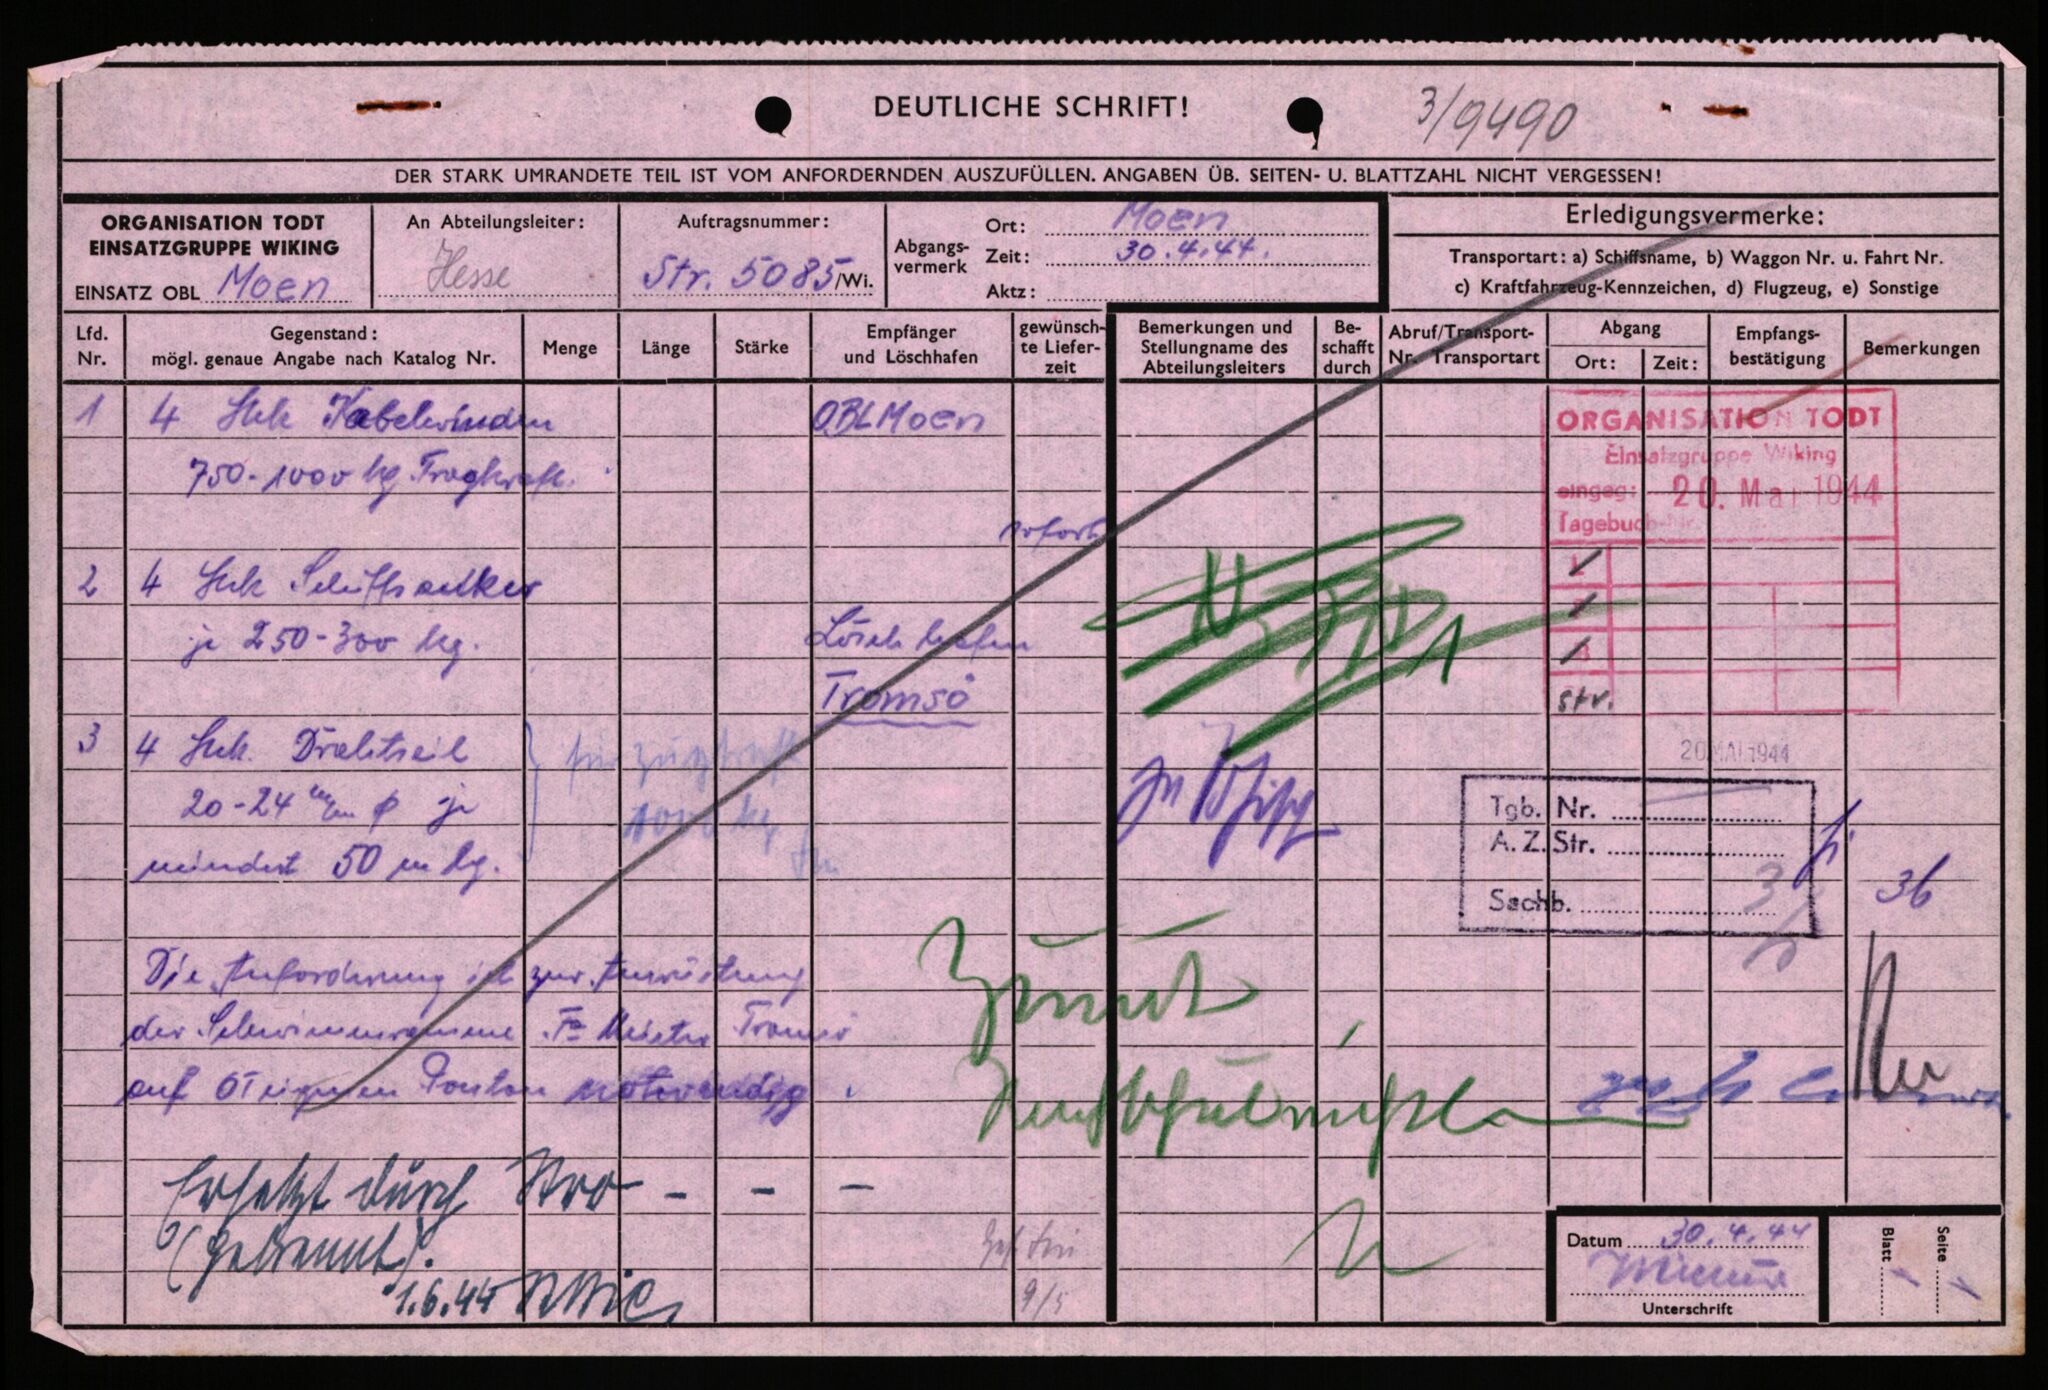 DEUTLICHE SCHRIFT!
3/9490
DER STARK UMRANDETE TEIL IST VOM ANFORDERNDEN AUSZUFÜLLEN. ANGABEN ÜB. SEITEN- U. BLATTZAHL NICHT VERGESSEN!
ORGANISATION TODT
EINSATZGRUPPE WIKING
EINSATZ OBL Moen
An Abteilungsleiter:
Hesse
Auftragsnummer:
Str. 5085/Wi.
Abgangs-
vermerk
Ort: Moen
Zeit: 30.4.44.
Aktz:
Erledigungsvermerke:
Transportart: a) Schiffsname, b) Waggon Nr. u. Fahrt Nr.
c) Kraftfahrzeug-Kennzeichen, d) Flugzeug, e) Sonstige
Lfd.
Nr.
Gegenstand:
mögl. genaue Angabe nach Katalog Nr.
Menge
Länge
Stärke
Empfänger
und Löschhafen
gewünsch-
te Liefer-
zeit
Bemerkungen und
Stellungname des
Abteilungsleiters
Be-
schafft
durch
Abruf/Transport-
Nr. Transportart
Abgang
Ort:
Zeit:
Empfangs-
bestätigung
Bemerkungen
1 4 Stck Kabelwinden
750-1000 kg Tragkraft.
OBL Moen
sofort
2 4 Stck Schiffsanker
je 250-300 kg.
Löschhafen
Tromsö
3 4 Stck. Drahtseil
20-24 m/m φ je
mindest 50 m lg.
für Zugkraft
1000 kg
ORGANISATION TODT
Einsatzgruppe Wiking
eingeg: 20. Mai 1944
Tagebuch-Nr.
1
2
3
Str.
20 MAI 1944
Tgb. Nr.
A. Z. Str.
Sachb. 3
36
Die Anforderung ist zur Ausrüstung
der Schwimmramme Fa Meister Tromsö
auf OT eignen Ponton notwendig.
Zurück
Ersetzt durch
(getrennt).
1.6.44
9/5
Datum 30.4.44
Unterschrift
Blatt 1
Seite 1